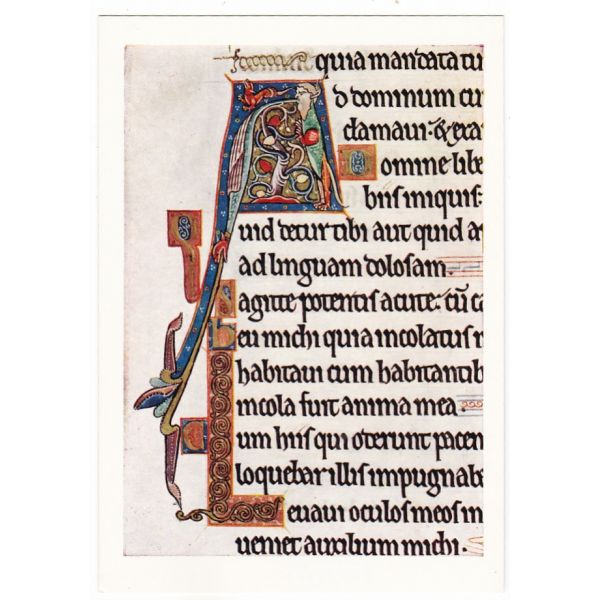 quia mandata tu
Ad dominum cu
clamaui: & exa
Domine libe
biis iniquis:
Quid detur tibi aut quid a
ad linguam dolosam.
Sagitte potentis acute: cũ ca
heu michi quia incolatus
habitaui cum habitantib
incola fuit anima mea.
Cum hiis qui oderunt pacem
loquebar illis impugnaba
Leuaui oculos meos in
ueniet auxilium michi.